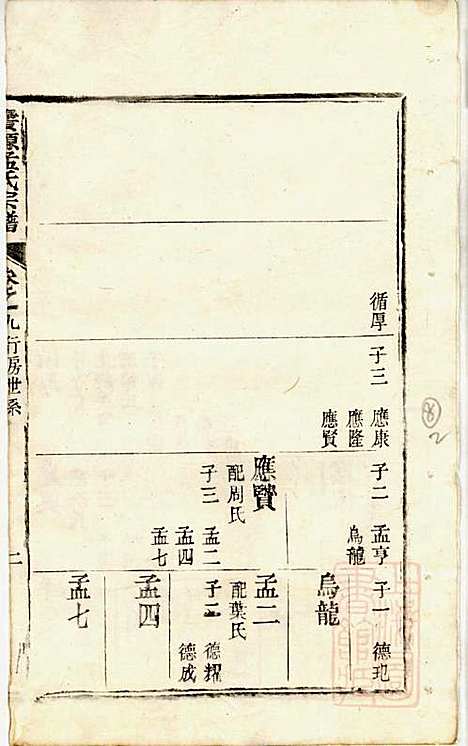 循厚
子三 應康
應隆
應賢
子二 孟亨
烏龍
應賢
配周氏
子三 孟二
孟四
孟七
子一 德玘
烏龍
孟二
配葉氏
子二 德耀
德成
孟四
孟七
孟氏宗譜
卷之九 行房世系
二
8
2